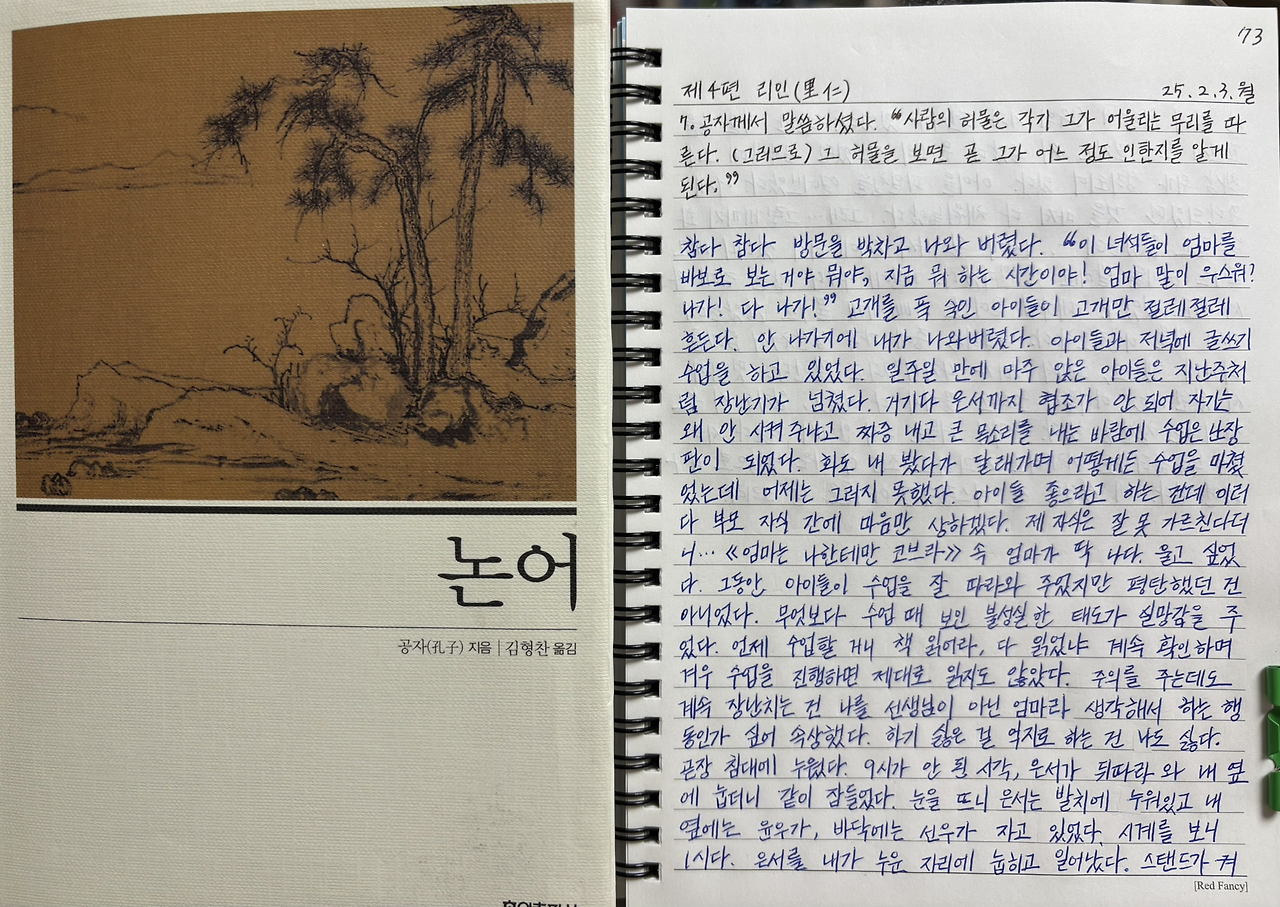 논어
공자(孔子) 지음 | 김형찬 옮김
73
제4편 리인(里仁) 25.2.3.월
7. 공자께서 말씀하셨다. "사람의 허물은 각기 그가 어울리는 무리를 따
른다. (그러므로) 그 허물을 보면 곧 그가 어느 정도 인한지를 알게
된다."
참다 참다 방문을 박차고 나와 버렸다. "이 녀석들이 엄마를
바보로 보는 거야 뭐야, 지금 뭐 하는 시간이야! 엄마 말이 우스워?
나가! 다 나가!" 고개를 푹 숙인 아이들이 고개만 절레절레
흔든다. 안 나가기에 내가 나와버렸다. 아이들과 저녁에 글쓰기
수업을 하고 있었다. 일주일 만에 마주 앉은 아이들은 지난주처
럼 장난기가 넘쳤다. 거기다 은서까지 협조가 안 되어 자기는
왜 안 시켜 주냐고 짜증 내고 큰 목소리를 내는 바람에 수업은 난장
판이 되었다. 화도 내 봤다가 달래가며 어떻게든 수업을 마쳤
었는데 어제는 그러지 못했다. 아이들 좋으라고 하는 건데 이러
다 부모 자식 간에 마음만 상하겠다. 제 자식은 잘 못 가르친다더
니… 《엄마는 나한테만 코브라》 속 엄마가 딱 나다. 울고 싶었
다. 그동안 아이들이 수업을 잘 따라와 주었지만 평탄했던 건
아니었다. 무엇보다 수업 때 보인 불성실한 태도가 실망감을 주
었다. 언제 수업할 거니 책 읽어라, 다 읽었냐 계속 확인하며
겨우 수업을 진행하면 제대로 읽지도 않았다. 주의를 주는데도
계속 장난치는 건 나를 선생님이 아닌 엄마라 생각해서 하는 행
동인가 싶어 속상했다. 하기 싫은 걸 억지로 하는 건 나도 싫다.
곧장 침대에 누웠다. 9시가 안 된 시각, 은서가 뒤따라 와 내 옆
에 눕더니 같이 잠들었다. 눈을 뜨니 은서는 발치에 누워있고 내
옆에는 윤우가, 바닥에는 선우가 자고 있었다. 시계를 보니
1시다. 은서를 내가 누운 자리에 눕히고 일어났다. 스탠드가 켜
[Red Fancy]